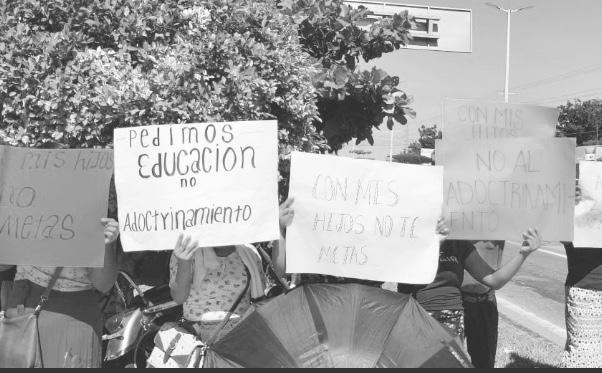 MIS HIJOS
NO
METAS
PEDIMOS
EDUCACION
no
ADOCTRINAMIENTO
CON MIS
HIJOS NO TE
METAS
CON MIS
HIJOS
NO AL
ADOCTRINAMI
ENTO